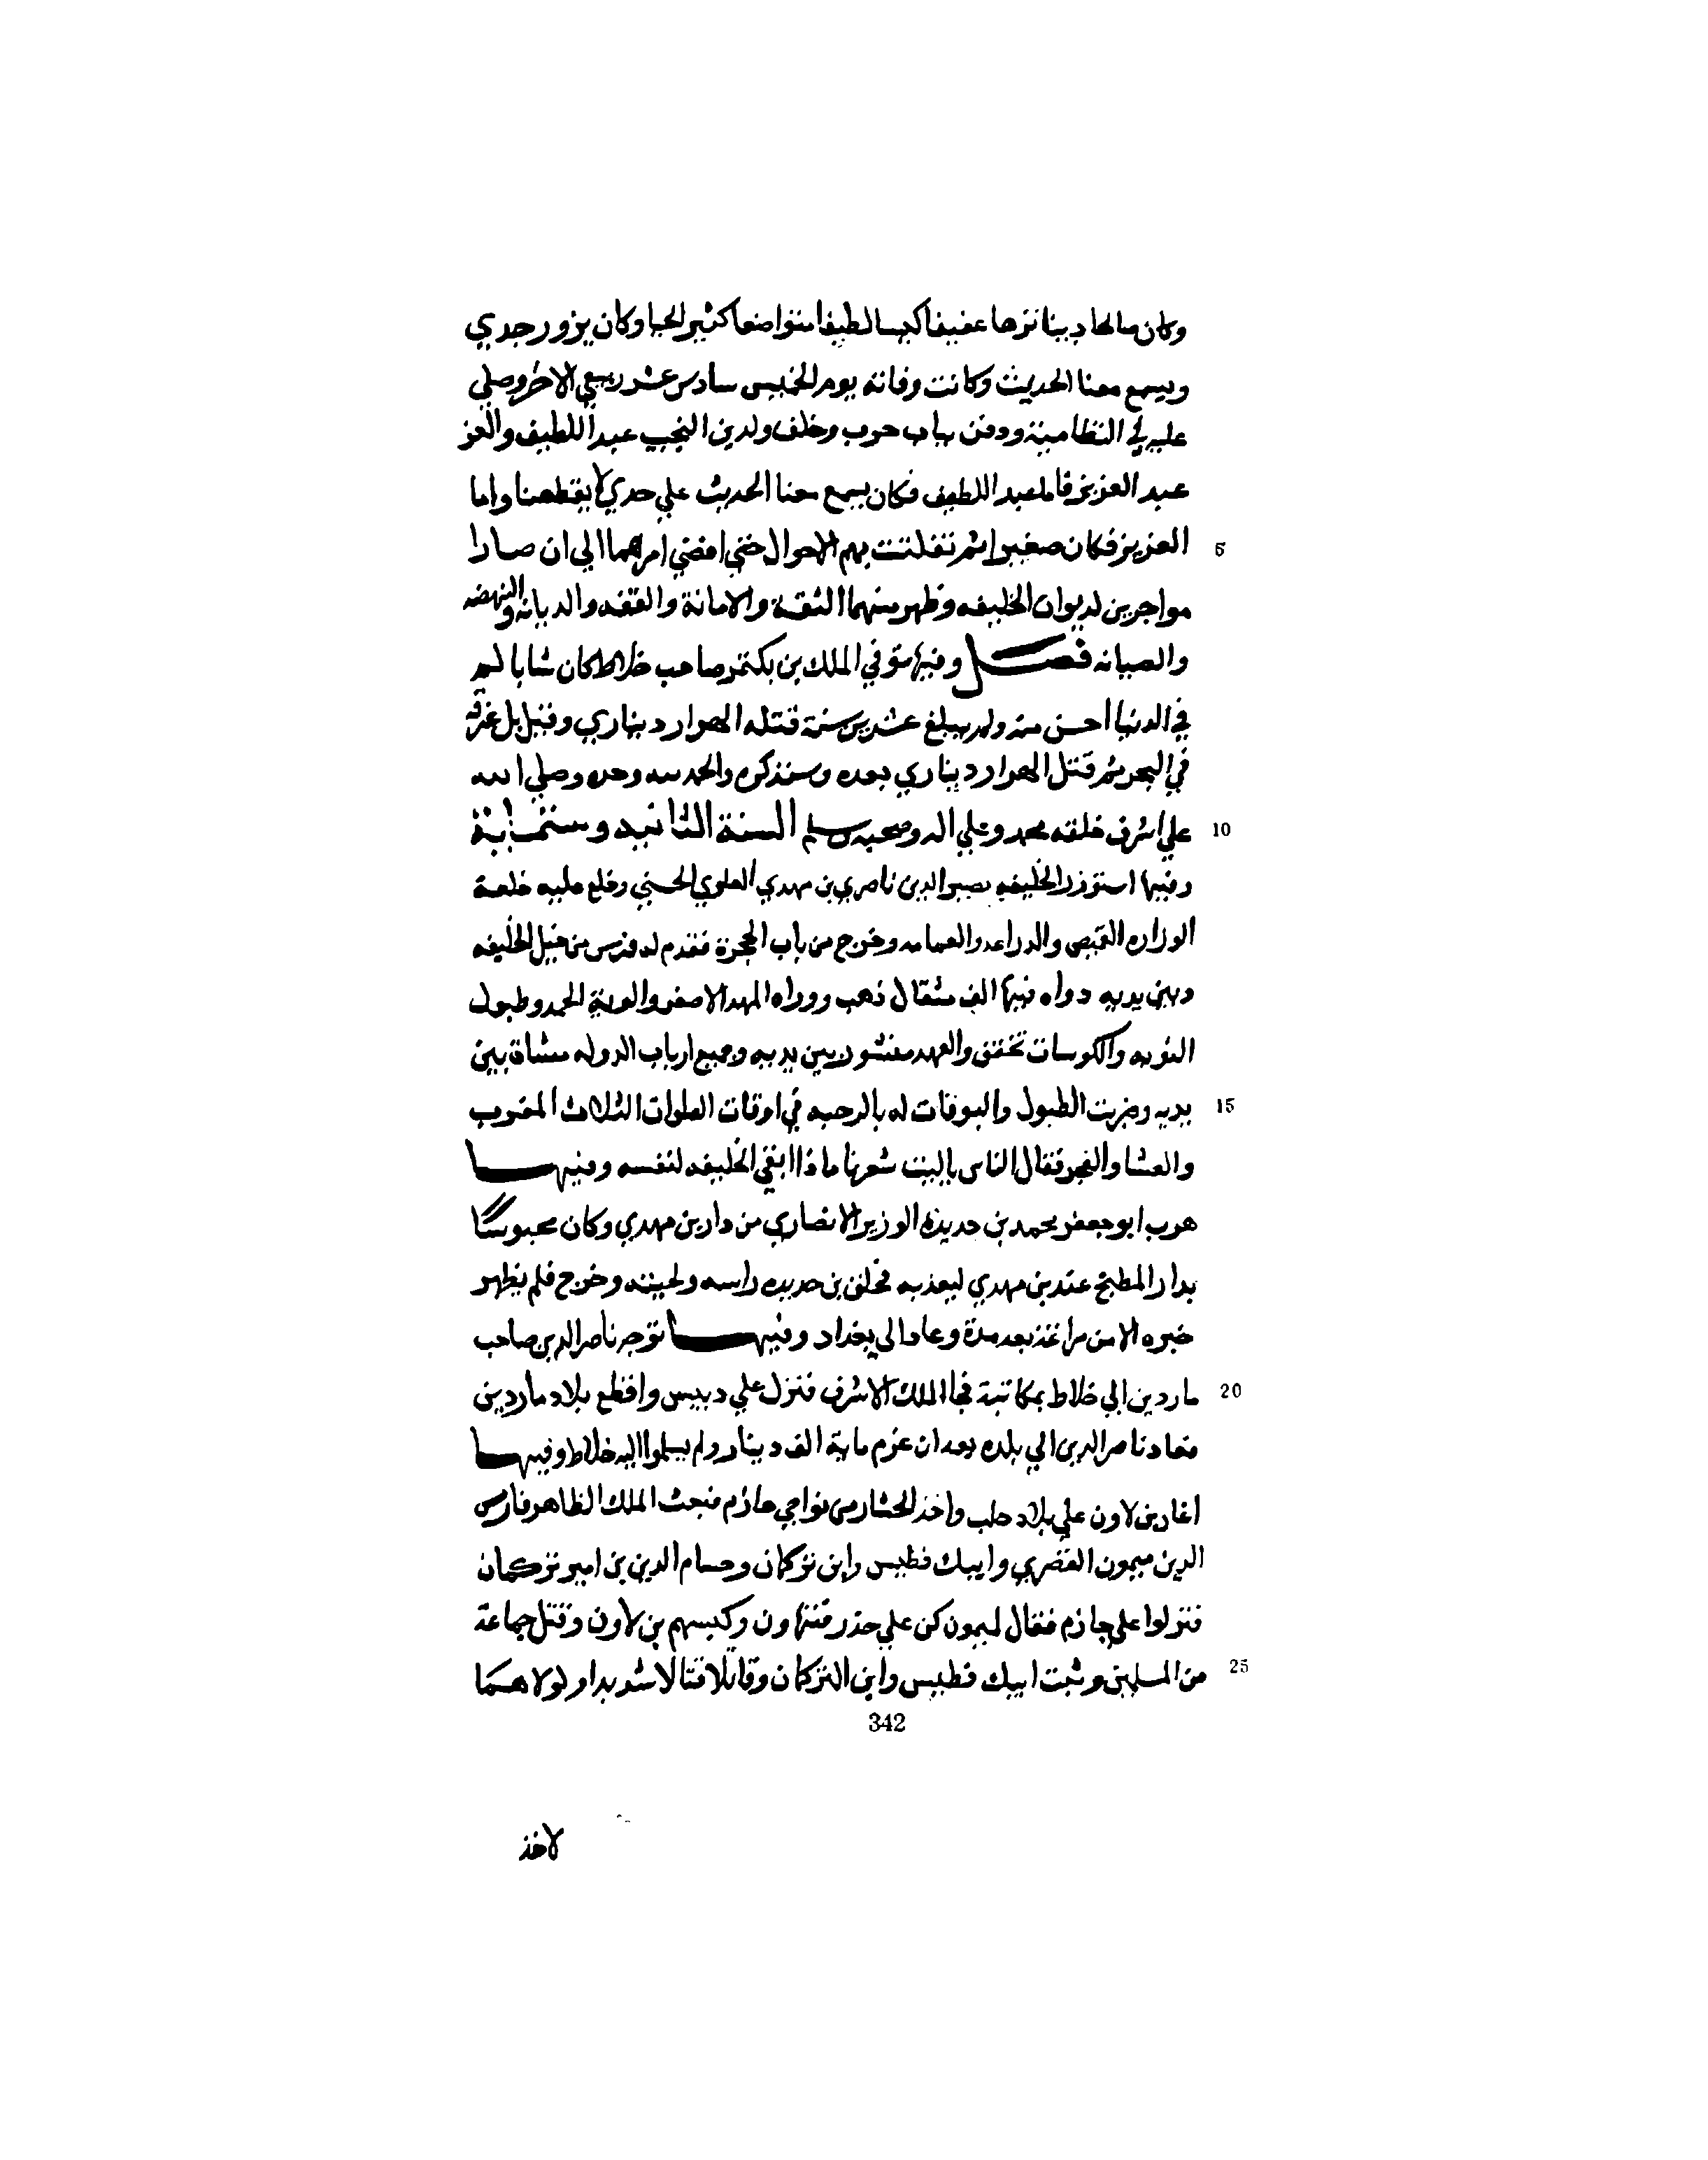 وكان صالحا دينا نزها عفيفا كيسا لطيفا متواضعا كثير الحيا وكان يزور جدي
ويسمع معنا الحديث وكانت وفاته يوم الخميس سادس عشر ربيع الاخر وصلي
عليه في النظامية ودفن بباب حرب وخلف ولدين النجيب عبد اللطيف والعز
عبد العزيز فاما عبد اللطيف فكان يسمع معنا الحديث علي جدي لا يقطعنا واما
5 العزيز فكان صغيرا ثم تقلبت بهم الاحوال حتي افضي امرهما الي ان صارا
مواجرين لديوان الخليفه وظهر منهما الثقة والامانة والعفه والديانه والنهضه
والصيانه فصل وفيها توفي الملك بن بكتمر صاحب خلاط كان شابا لم
في الدنيا احسن منه ولم يبلغ عشرين سنة قتله الهوار ديناري وقيل بل غرقه
في البحر ثم قتل الهوار ديناري بعده وسنذكره والحمد لله وحده وصلي الله
10 علي اشرف خلقه محمد وعلي اله وصحبه وسلم السنة الثانيه وستماية
وفيها استوزر الخليفه نصير الدين ناصري بن مهدي العلوي الحسني وخلع عليه خلعة
الوزاره القميص والدراعه والعمامه وخرج من باب الحجرة فقدم له فرس من خيل الخليفه
وبين يديه دواه فيها الف مثقال ذهب ووراه المهد الاصفر والوية الحمد وطبول
النوبه والكوسات تخفق والعهد منشور بين يديه وجميع ارباب الدوله مشاة بين
15 يديه وضربت الطبول والبوقات له بالرحبه في اوقات الصلوات الثلاث المغرب
والعشا والفجر فقال الناس ياليت شعرنا ماذا ابقي الخليفه لنفسه وفيها
هرب ابو جعفر محمد بن حديدة الوزير الانصاري من دار بن مهدي وكان محبوسا
بدار المطبخ عند بن مهدي ليعذبه فحلق بن حديده راسه ولحيته وخرج فلم يظهر
خبره الا من مراغة بعد مدة وعاد الي بغداد وفيها توجه ناصر الدين صاحب
20 ماردين الي خلاط بمكاتبة فجا الملك الاشرف فنزل علي دنيسر واقطع بلاد ماردين
فعاد ناصر الدين الي بلده بعد ان غرم ماية الف دينار ولم يسلموا اليه خلاط وفيها
اغار بن لاون علي بلاد حلب واخذ الجشار من نواحي حازم فبعث الملك الظاهر فارس
الدين ميمون القصري وايبك فطيس وابن تركمان وحسام الدين بن امير تركمان
فنزلوا علي حازم فقال لميمون كن علي حذر فتهاون وكبسهم بن لاون وقتل جماعة
25 من المسلمين وثبت ايبك فطيس وابن التركمان وقاتلا قتالا شديدا ولولاهما
342
لاخذ